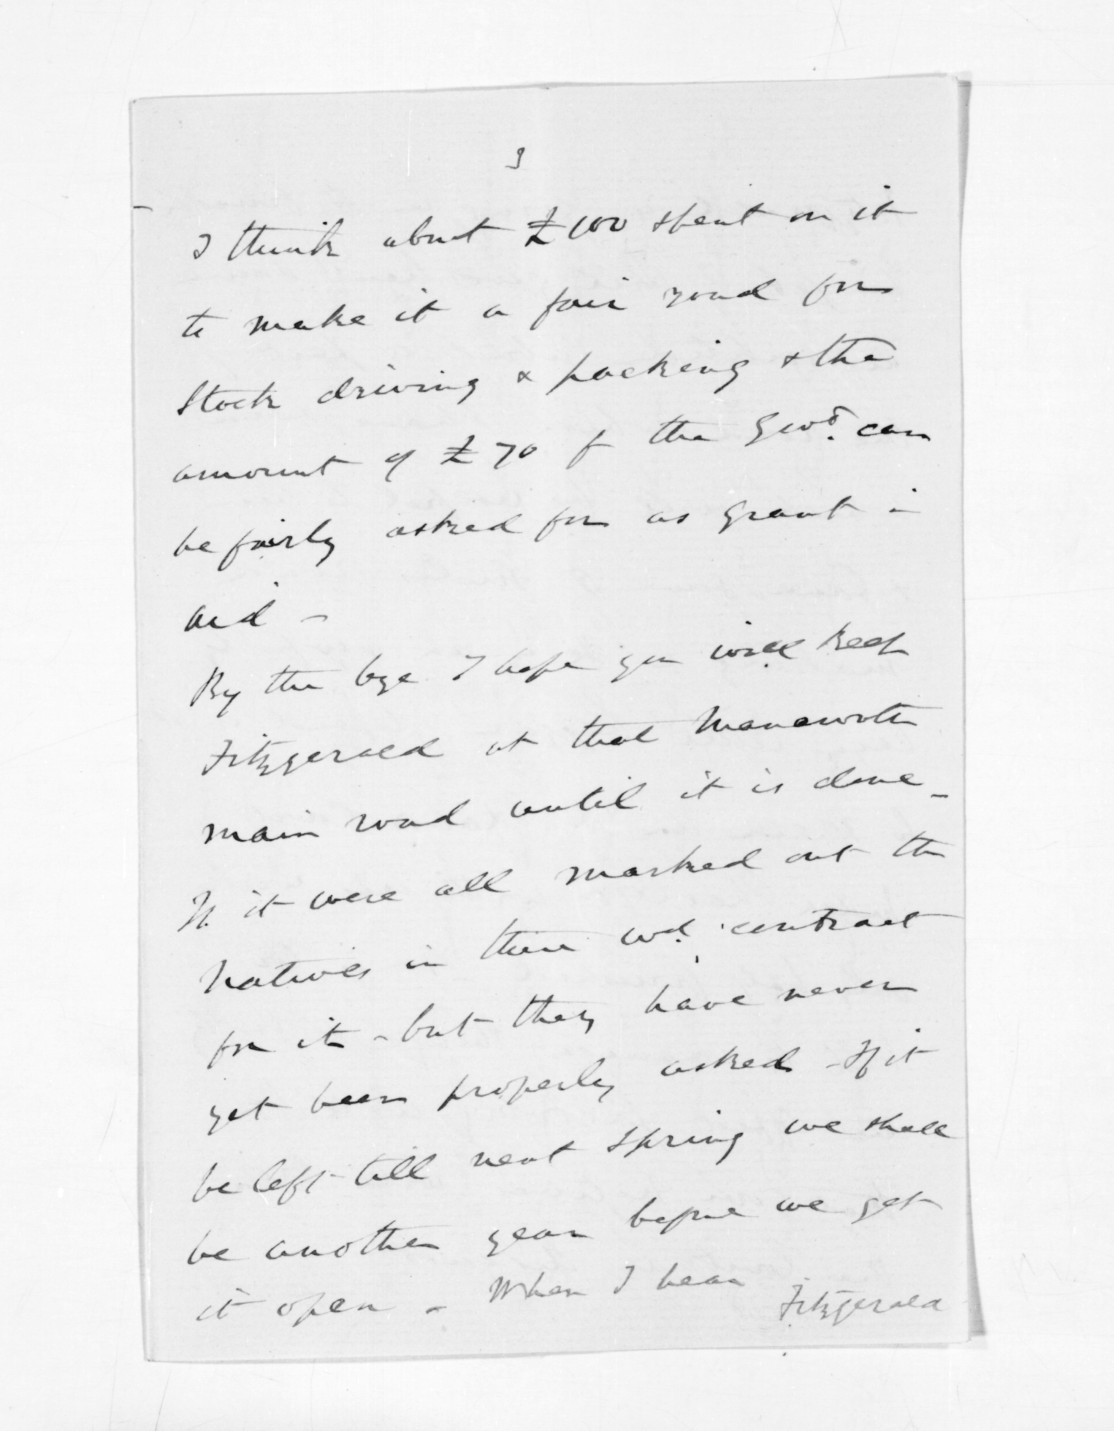 3
I think about £100 spent on it
to make it a fair road for
Stock driving & packing & the
amount of £70 f the Govt. can
be fairly asked for as grant in
aid -
By the bye I hope you will keep
Fitzgerald at that Manawatu
main road until it is done_
If it were all marked out the
Natives in there wd. contract
for it - but they have never
yet been properly asked - If it
be left till next Spring we shall
be another year before we get
it open - When I hear
Fitzgerald